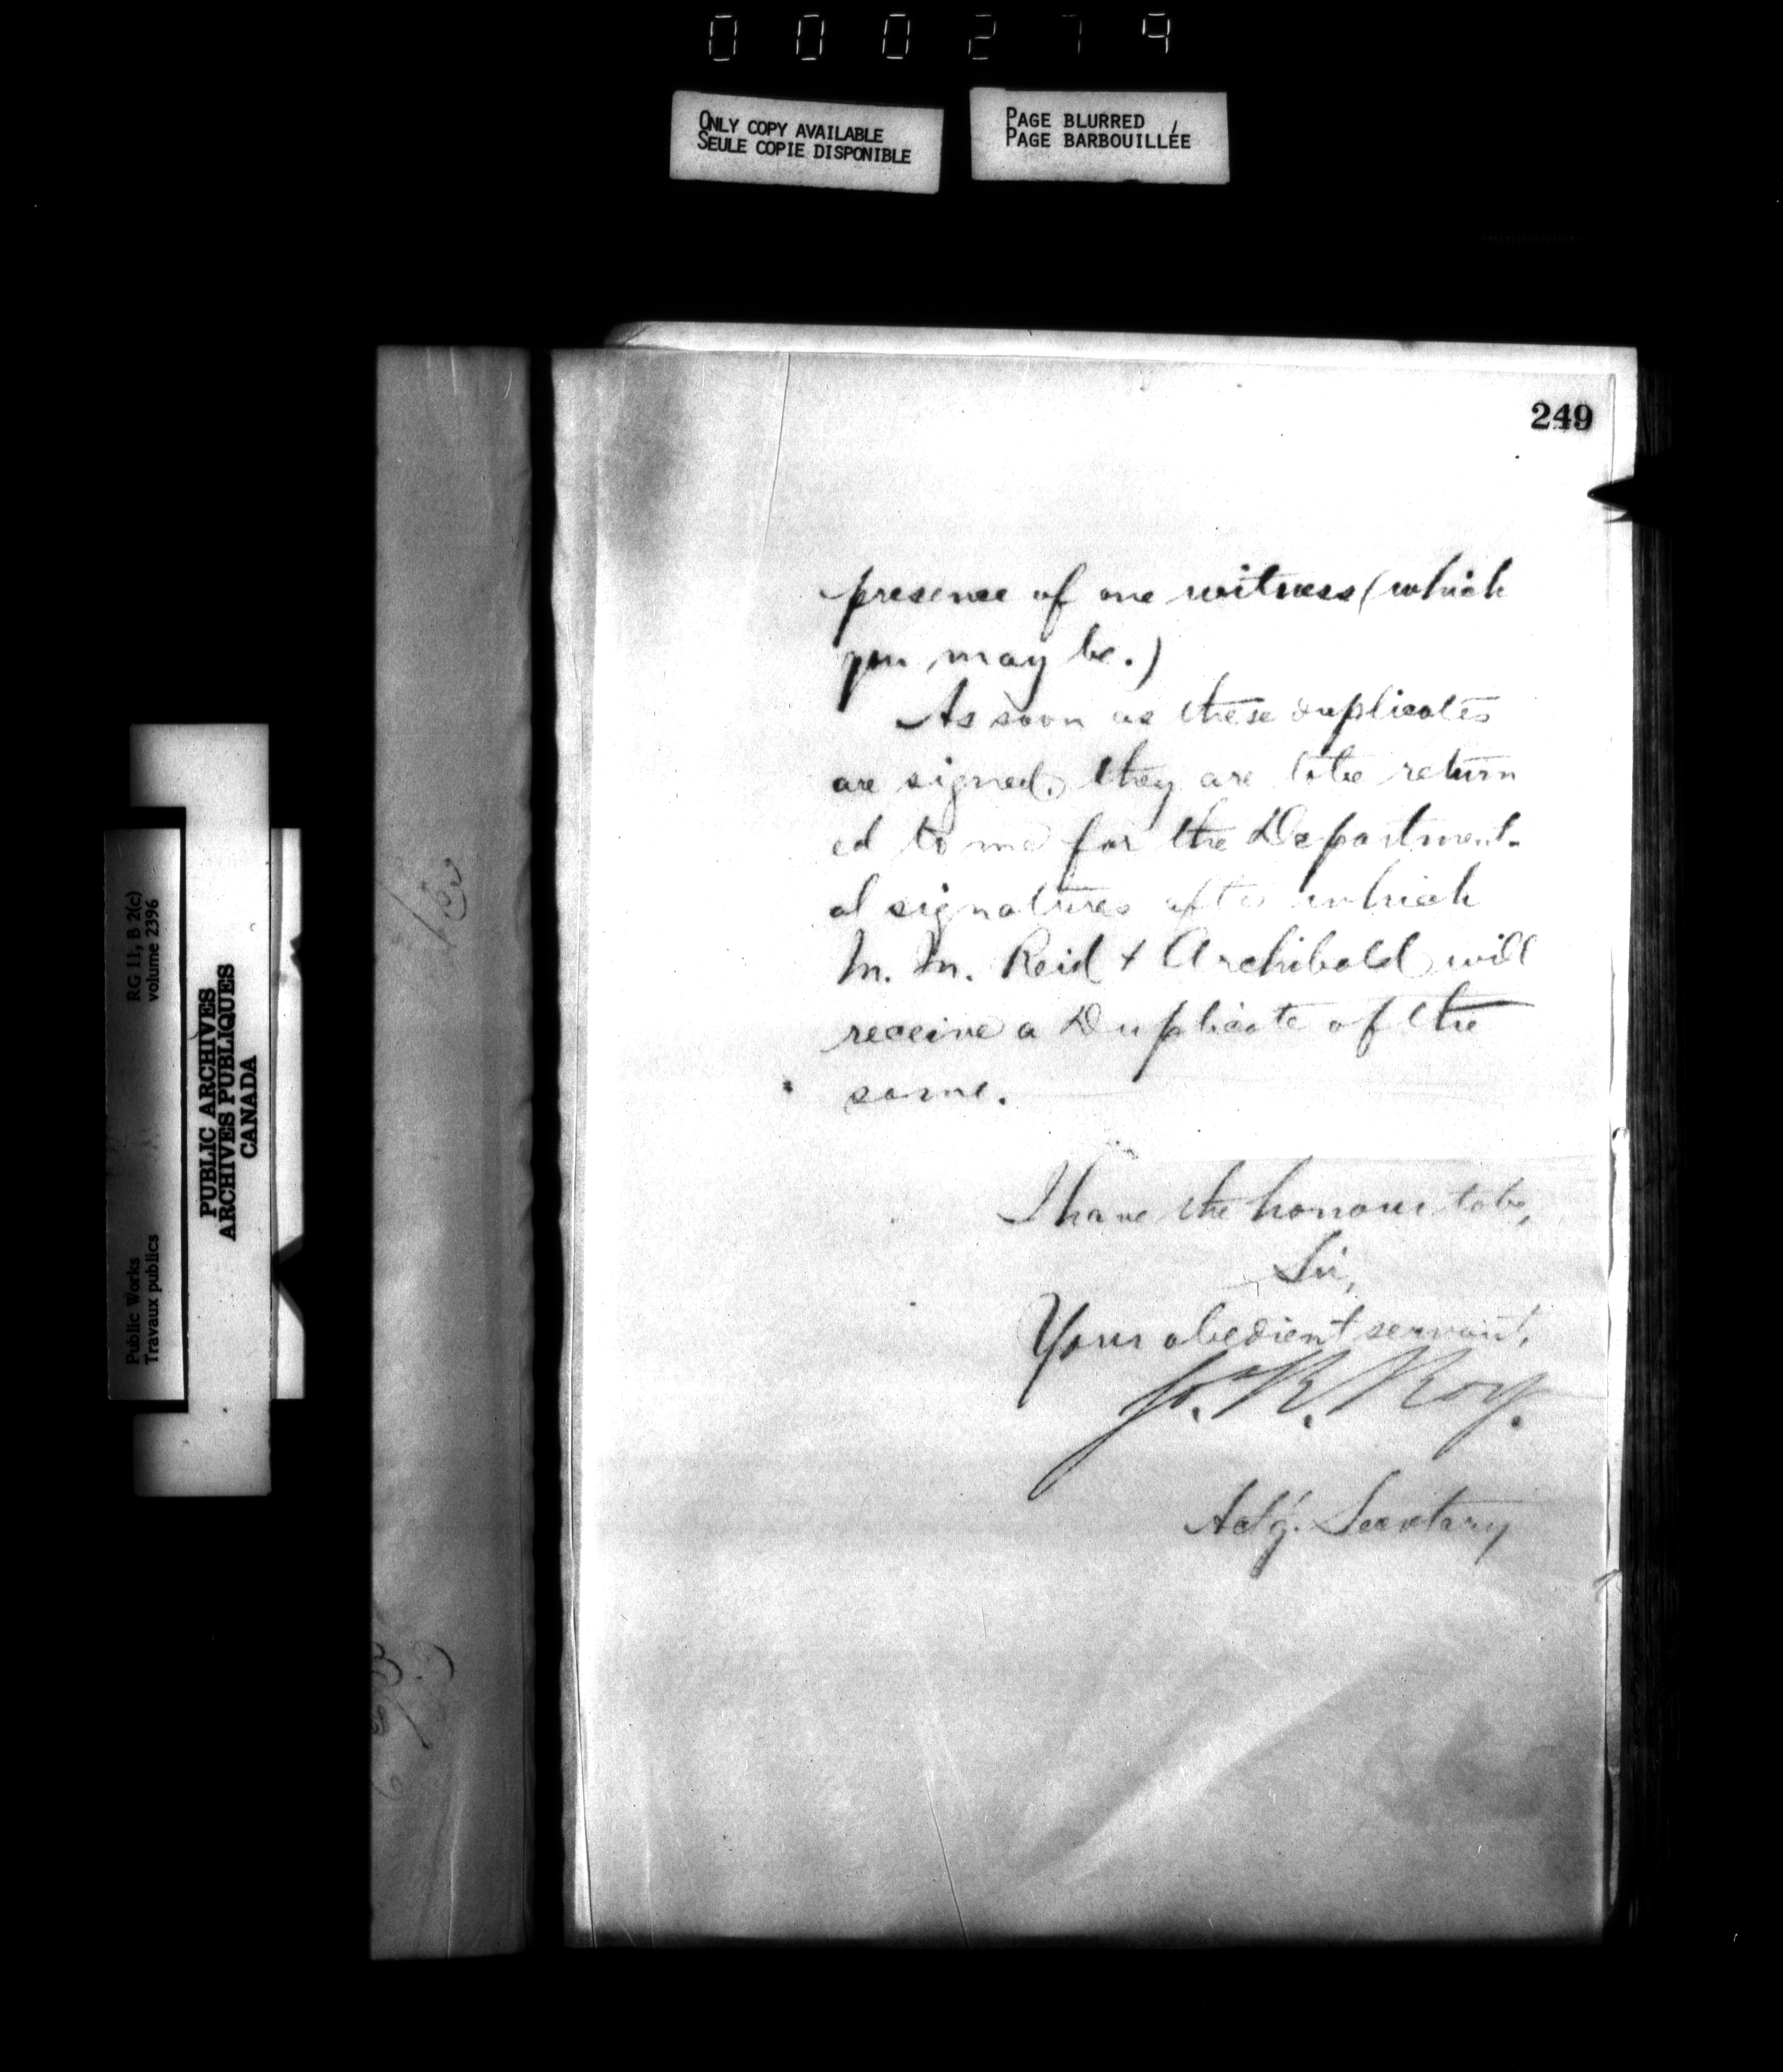 000279
ONLY COPY AVAILABLE
SEULE COPIE DISPONIBLE
PAGE BLURRED
PAGE BARBOUILLÉE
249
presence of one witness (which
you may be.)
As soon as these duplicates
are signed, they are to be return
ed to me for the Department-
al signatures after which
M. M. Reid & Archibald will
receive a Duplicate of the
same.
I have the honour to be,
Sir,
Your obedient servant,
R. Roy.
Act'g. Secretary
RG 11, B 2(c)
volume 2396
Public Works
Travaux publics
PUBLIC ARCHIVES
ARCHIVES PUBLIQUES
CANADA